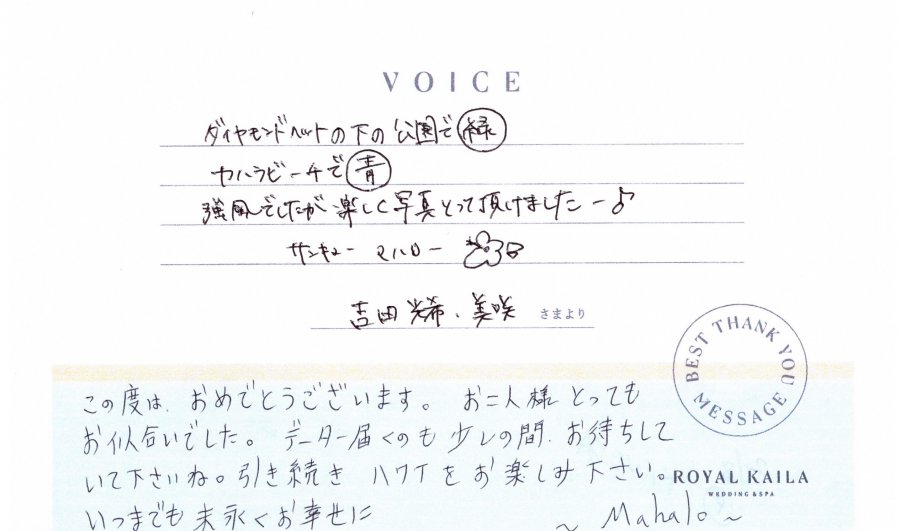 VOICE
ダイヤモンドヘットの下の公園で緑
カハラビーチで青
強風でしたが楽しく写真とって頂けましたー♪
サンキュー マハロー
吉田 光希、美咲 さまより
BEST THANK YOU MESSAGE
この度は、おめでとうございます。 お二人様 とっても
お似合いでした。 データー届くのも 少しの間、お待ちして
いて下さいね。引き続き ハワイをお楽しみ下さい。
ROYAL KAILA
WEDDING & SPA
いつまでも 末永くお幸せに
~ Mahalo ~